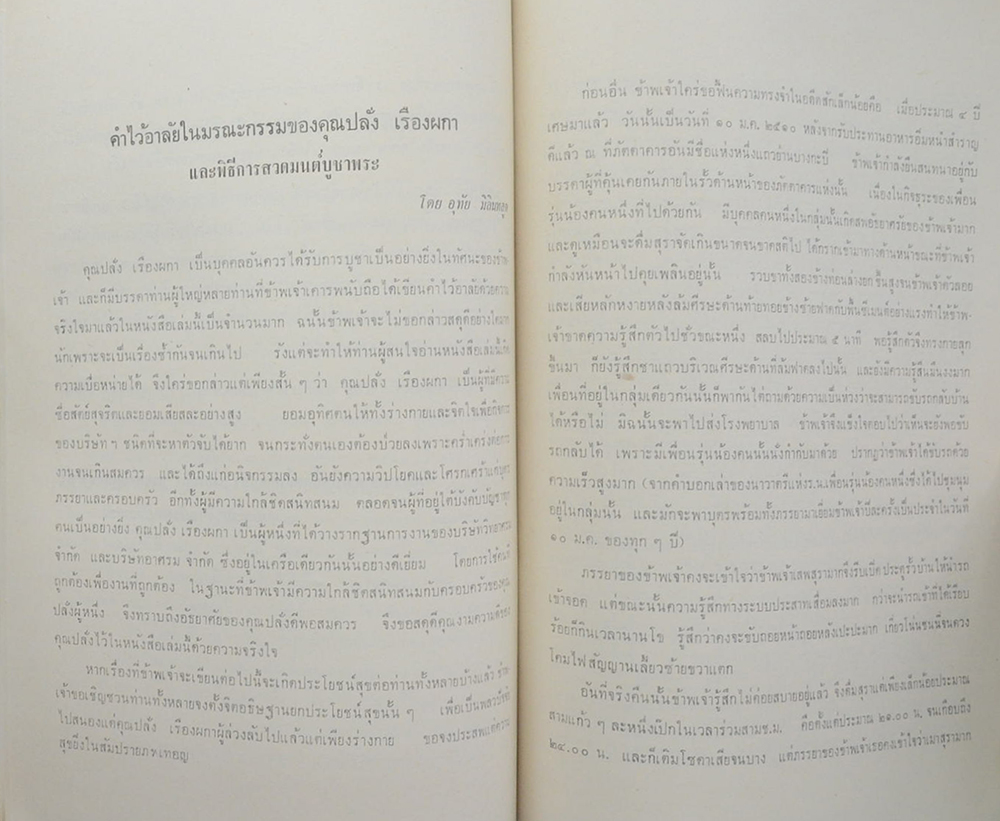 คำไว้อาลัยในมรณะกรรมของคุณปลั่ง เรืองผกา
และพิธีการสวดมนต์บูชาพระ
โดย อุทัย
คุณปลั่ง เรืองผกา เป็นบุคคลอันควรได้รับการบูชาเป็นอย่างยิ่งในทัศนะของข้าพ
เจ้า และก็มีบรรดาท่านผู้ใหญ่หลายท่านที่ข้าพเจ้าเคารพนับถือได้เขียนคำไว้อาลัยด้วยความ
จริงใจมาแล้วในหนังสือเล่มนี้เป็นจำนวนมาก ฉนั้นข้าพเจ้าจะไม่ขอกล่าวสดุดีอย่างใดมาก
นักเพราะจะเป็นเรื่องซ้ำกันจนเกินไป รังแต่จะทำให้ท่านผู้สนใจอ่านหนังสือเล่มนี้เกิด
ความเบื่อหน่ายได้ จึงใคร่ขอกล่าวแต่เพียงสั้น ๆ ว่า คุณปลั่ง เรืองผกา เป็นผู้ที่มีความ
ซื่อสัตย์สุจริตและยอมเสียสละอย่างสูง ยอมอุทิศตนให้ทั้งร่างกายและจิตใจเพื่อกิจการ
ของบริษัท ฯ ชนิดที่จะหาตัวจับได้ยาก จนกระทั่งตนเองต้องป่วยลงเพราะคร่ำเคร่งต่อการ
งานจนเกินสมควร และได้ถึงแก่อนิจกรรมลง อันยังความวิปโยคและโศรกเศร้าแก่บุตร
ภรรยาและครอบครัว อีกทั้งผู้มีความใกล้ชิดสนิทสนม ตลอดจนผู้ที่อยู่ใต้บังคับบัญชาทุก
คนเป็นอย่างยิ่ง คุณปลั่ง เรืองผกา เป็นผู้หนึ่งที่ได้วางรากฐานการงานของบริษัทวิทยาคม
จำกัด และบริษัทอาศรม จำกัด ซึ่งอยู่ในเครือเดียวกันนั้นอย่างดีเยี่ยม โดยการใช้คนที่
ถูกต้องเพื่องานที่ถูกต้อง ในฐานะที่ข้าพเจ้ามีความใกล้ชิดสนิทสนมกับครอบครัวของคุณ
ปลั่งผู้หนึ่ง จึงทราบถึงอัธยาศัยของคุณปลั่งดีพอสมควร จึงขอสดุดีคุณงามความดีของ
คุณปลั่งไว้ในหนังสือเล่มนี้ด้วยความจริงใจ
หากเรื่องที่ข้าพเจ้าจะเขียนต่อไปนี้จะเกิดประโยชน์สุขต่อท่านทั้งหลายบ้างแล้ว ข้าพ
เจ้าขอเชิญชวนท่านทั้งหลายจงตั้งจิตอธิษฐานยกประโยชน์สุขนั้น ๆ เพื่อเป็นพลวปัจจัย
ไปสนองแด่คุณปลั่ง เรืองผกาผู้ล่วงลับไปแล้วแต่เพียงร่างกาย ขอจงประสพแต่ความ
สุขยิ่งในสัมปรายภพเทอญ
ก่อนอื่น ข้าพเจ้าใคร่ขอฟื้นความทรงจำในอดีตสักเล็กน้อยคือ เมื่อประมาณ ๔ ปี
เศษมาแล้ว วันนั้นเป็นวันที่ ๑๐ ม.ค. ๒๕๑๐ หลังจากรับประทานอาหารอิ่มหนำสำราญ
ดีแล้ว ณ ที่ภัตตาคารอันมีชื่อแห่งหนึ่งแถวย่านบางกะปี ข้าพเจ้ากำลังยืนสนทนาอยู่กับ
บรรดาผู้ที่คุ้นเคยกันภายในรั้วด้านหน้าของภัตตาคารแห่งนั้น เนื่องในกิจธุระของเพื่อน
รุ่นน้องคนหนึ่งที่ไปด้วยกัน มีบุคคลคนหนึ่งในกลุ่มนั้นเกิดสพอัธยาศรัยของข้าพเจ้ามาก
และดูเหมือนจะดื่มสุราจัดเกินขนาดจนขาดสติไป ได้กรากเข้ามาทางด้านหน้าขณะที่ข้าพเจ้า
กำลังหันหน้าไปคุยเพลินอยู่นั้น รวบขาทั้งสองข้างท่อนล่างยกขึ้นสูงจนข้าพเจ้าตัวลอย
และเสียหลักหงายหลังล้มศีรษะด้านท้ายทอยข้างซ้ายฟาดกับพื้นซีเมนต์อย่างแรงทำให้ข้าพ-
เจ้าขาดความรู้สึกตัวไปชั่วขณะหนึ่ง สลบไปประมาณ ๕ นาที พอรู้สึกตัวจึงทรงกายลุก
ขึ้นมา ก็ยังรู้สึกชาแถวบริเวณศีรษะด้านที่ล้มฟาดลงไปนั้น และยังมีความรู้สึกมึนงงมาก
เพื่อนที่อยู่ในกลุ่มเดียวกันนั้นก็พากันไต่ถามด้วยความเป็นห่วงว่าจะสามารถขับรถกลับบ้าน
ได้หรือไม่ มิฉนั้นจะพาไปส่งโรงพยาบาล ข้าพเจ้าจึงแข็งใจตอบไปว่าเห็นจะยังพอขับ
รถกลับได้ เพราะมีเพื่อนรุ่นน้องคนนั้นนั่งกำกับมาด้วย ปรากฏว่าข้าพเจ้าได้ขับรถด้วย
ความเร็วสูงมาก (จากคำบอกเล่าของนาวาตรีแห่งร.น.เพื่อนรุ่นน้องคนหนึ่งซึ่งได้ไปชุมนุม
อยู่ในกลุ่มนั้น และมักจะพาบุตรพร้อมทั้งภรรยามาเยี่ยมข้าพเจ้าปีละครั้งเป็นประจำในวันที่
๑๐ ม.ค. ของทุก ๆ ปี)
ภรรยาของข้าพเจ้าคงจะเข้าใจว่าข้าพเจ้าเสพสุรามากจึงรีบเปิดประตูรั้วบ้านให้นำรถ
เข้าจอด แต่ขณะนั้นความรู้สึกทางระบบประสาทเสื่อมลงมาก กว่าจะนำรถเข้าที่ได้เรียบ
ร้อยก็กินเวลานานโข รู้สึกว่าคงจะขับถอยหน้าถอยหลังเปะปะมาก เกี่ยวโน่นชนนี่จนดวง
โคมไฟสัญญานเลี้ยวซ้ายขวาแตก
อันที่จริงคืนนั้นข้าพเจ้ารู้สึกไม่ค่อยสบายอยู่แล้ว จึงดื่มสุราแต่เพียงเล็กน้อยประมาณ
สามแก้ว ๆ ละหนึ่งเป๊กในเวลาร่วมสามช.ม. คือตั้งแต่ประมาณ ๒๑.๐๐ น. จนเกือบถึง
๒๔.๐๐ น. และก็เติมโซดาเสียจนบาง แต่ภรรยาของข้าพเจ้าเธอคงเข้าใจว่าเมาสุรามาก